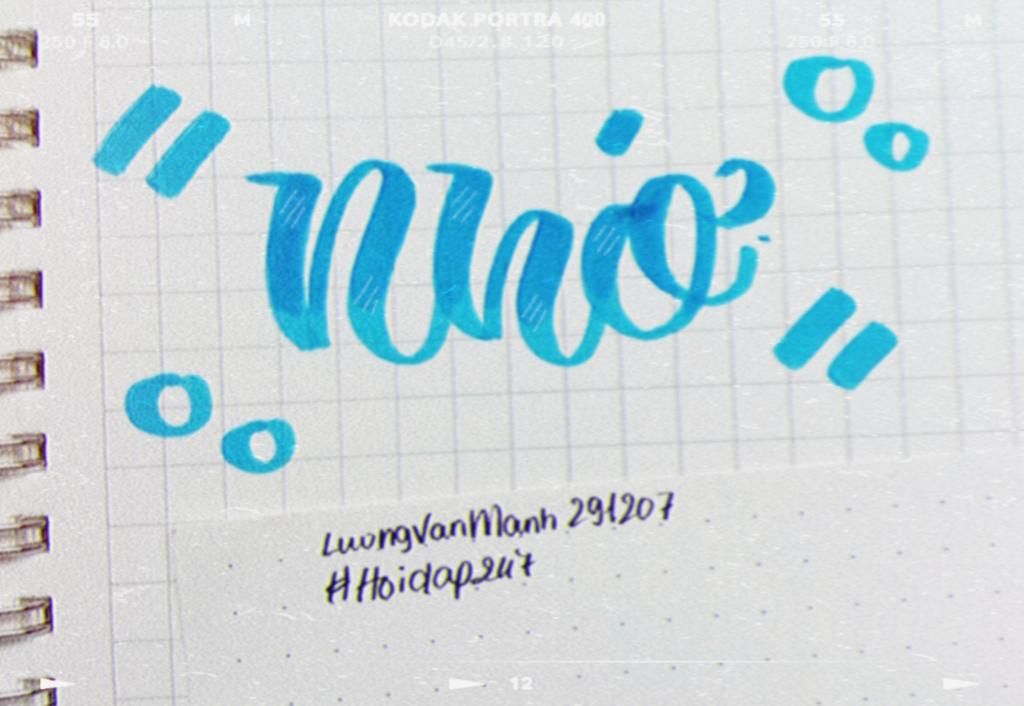 55 M KODAK PORTRA 400 55 M
250 F 8.0 D45/2.8 120 250 F 8.0
Nhớ
LuongVanManh 291207
#Hoidap247
12